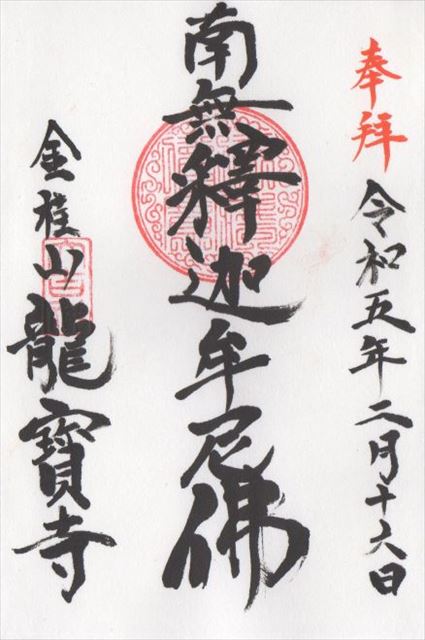 奉拜
令和五年二月十六日
南無釋迦牟尼佛
金桂山
龍寶寺